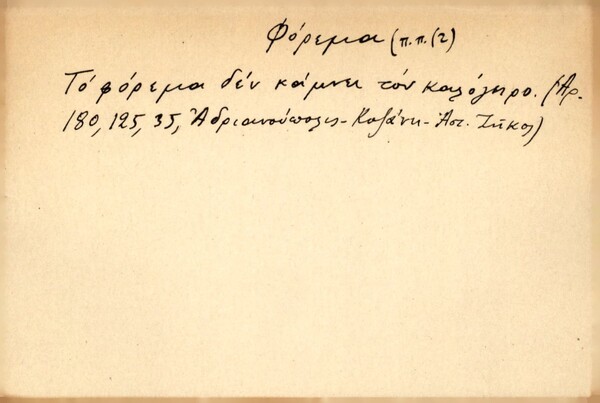 Φόρεμα (π.π. (2)
Τό φόρεμα δέν κάμνει τόν καλόγηρο. (Αρ.
180, 125, 35, Ἀδριανούπολις - Κοζάνη - Ἀστ. Ζήκος)